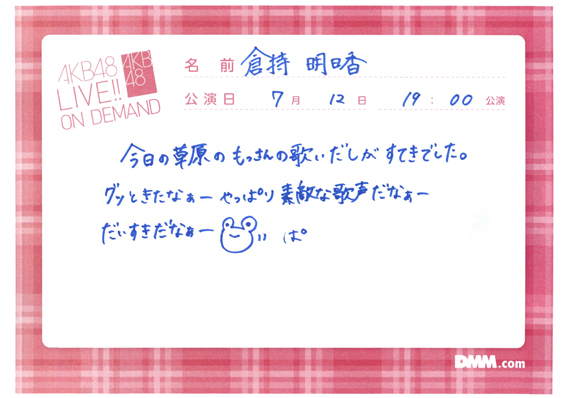 AKB48
LIVE!!
ON DEMAND
AKB
48
名 前 倉持 明日香
公演日 7月 12日 19:00 公演
今日の草原のもっさんの歌いだしがすてきでした。
グッときたなぁー やっぱり素敵な歌声だなぁー
だいすきだなぁー ぱ
DMM.com